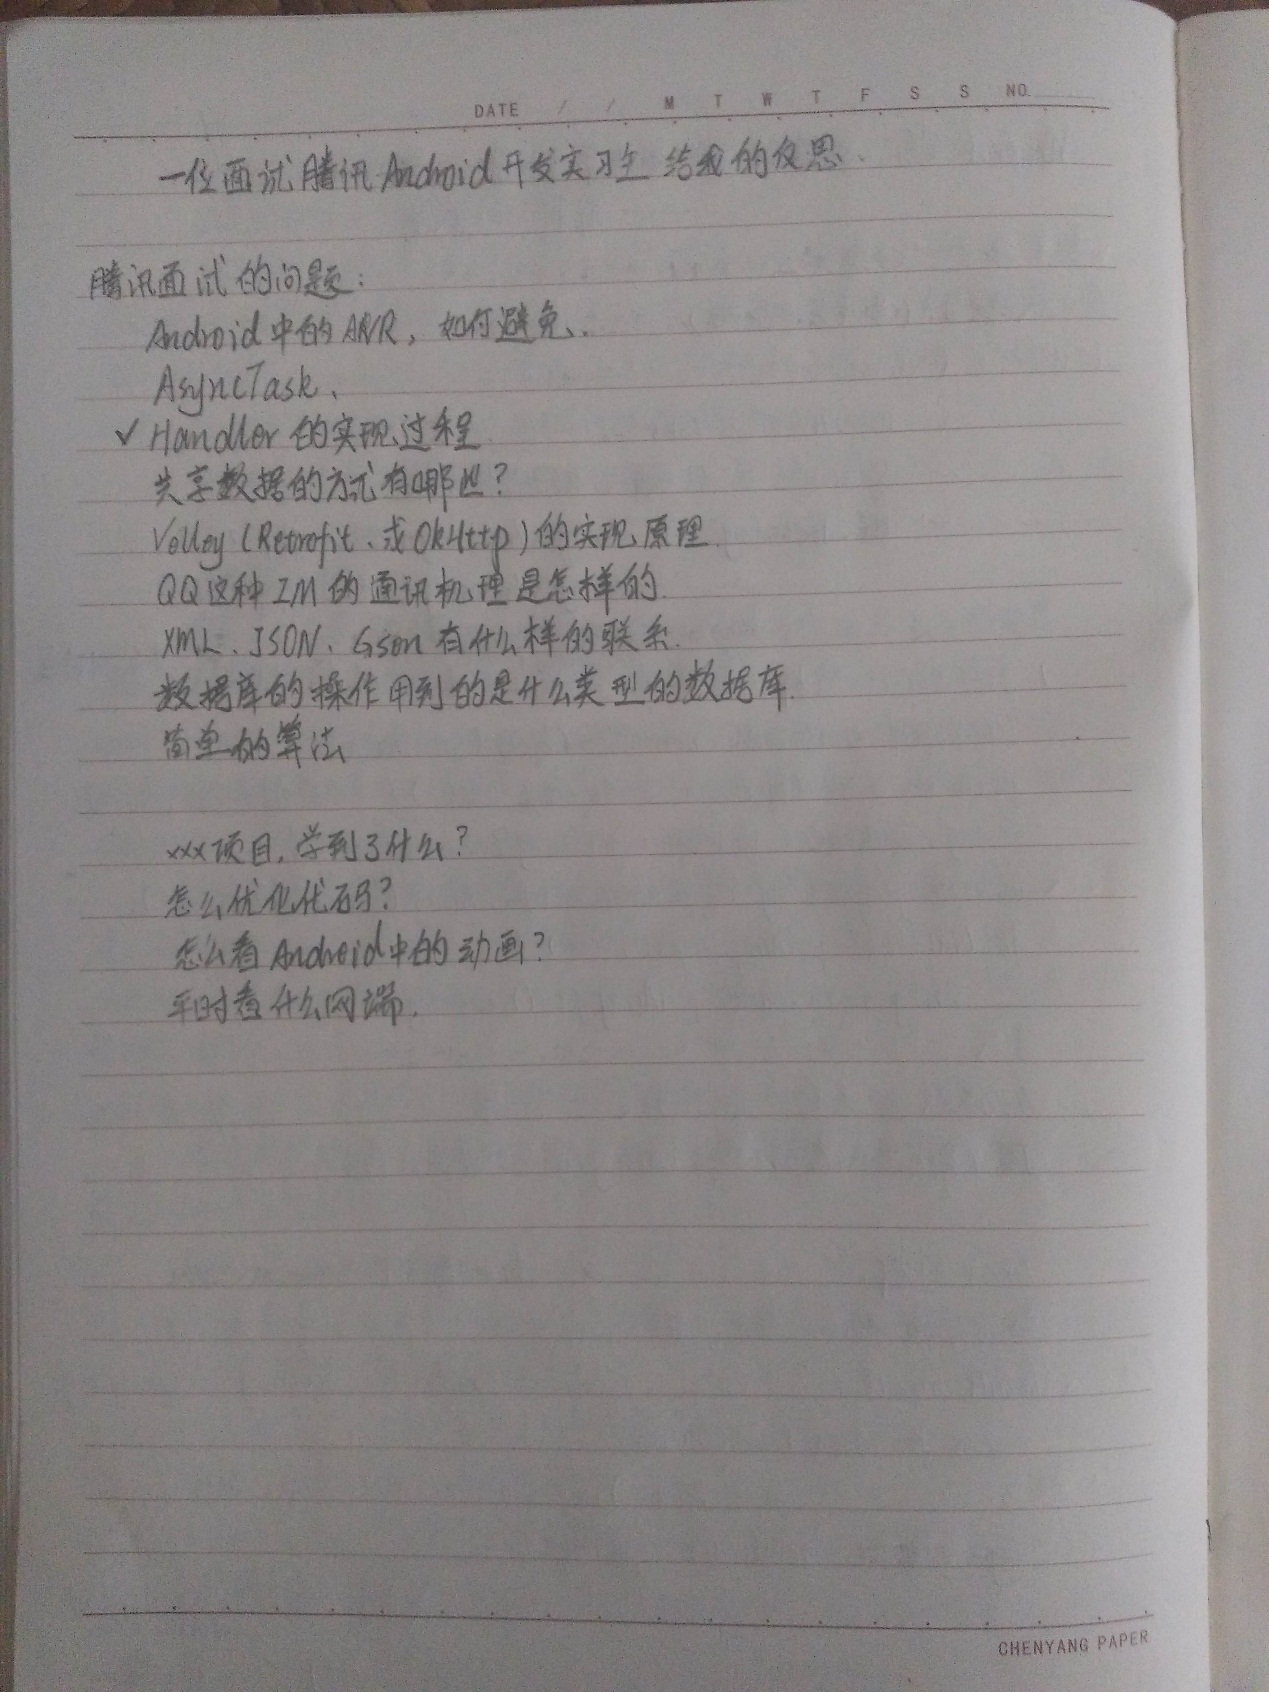 DATE / / M T W T F S S NO.
一位面试腾讯Android开发实习生给我的反思.
腾讯面试的问题:
Android中的ANR, 如何避免.
AsyncTask.
✓ Handler的实现过程
共享数据的方式有哪些?
Volley(Retrofit、或OkHttp)的实现原理
QQ这种IM的通讯机理是怎样的.
XML、JSON、Gson有什么样的联系.
数据库的操作用到的是什么类型的数据库.
简单的算法
xxx项目, 学到了什么?
怎么优化代码?
怎么看Android中的动画?
平时看什么网端.
CHENYANG PAPER